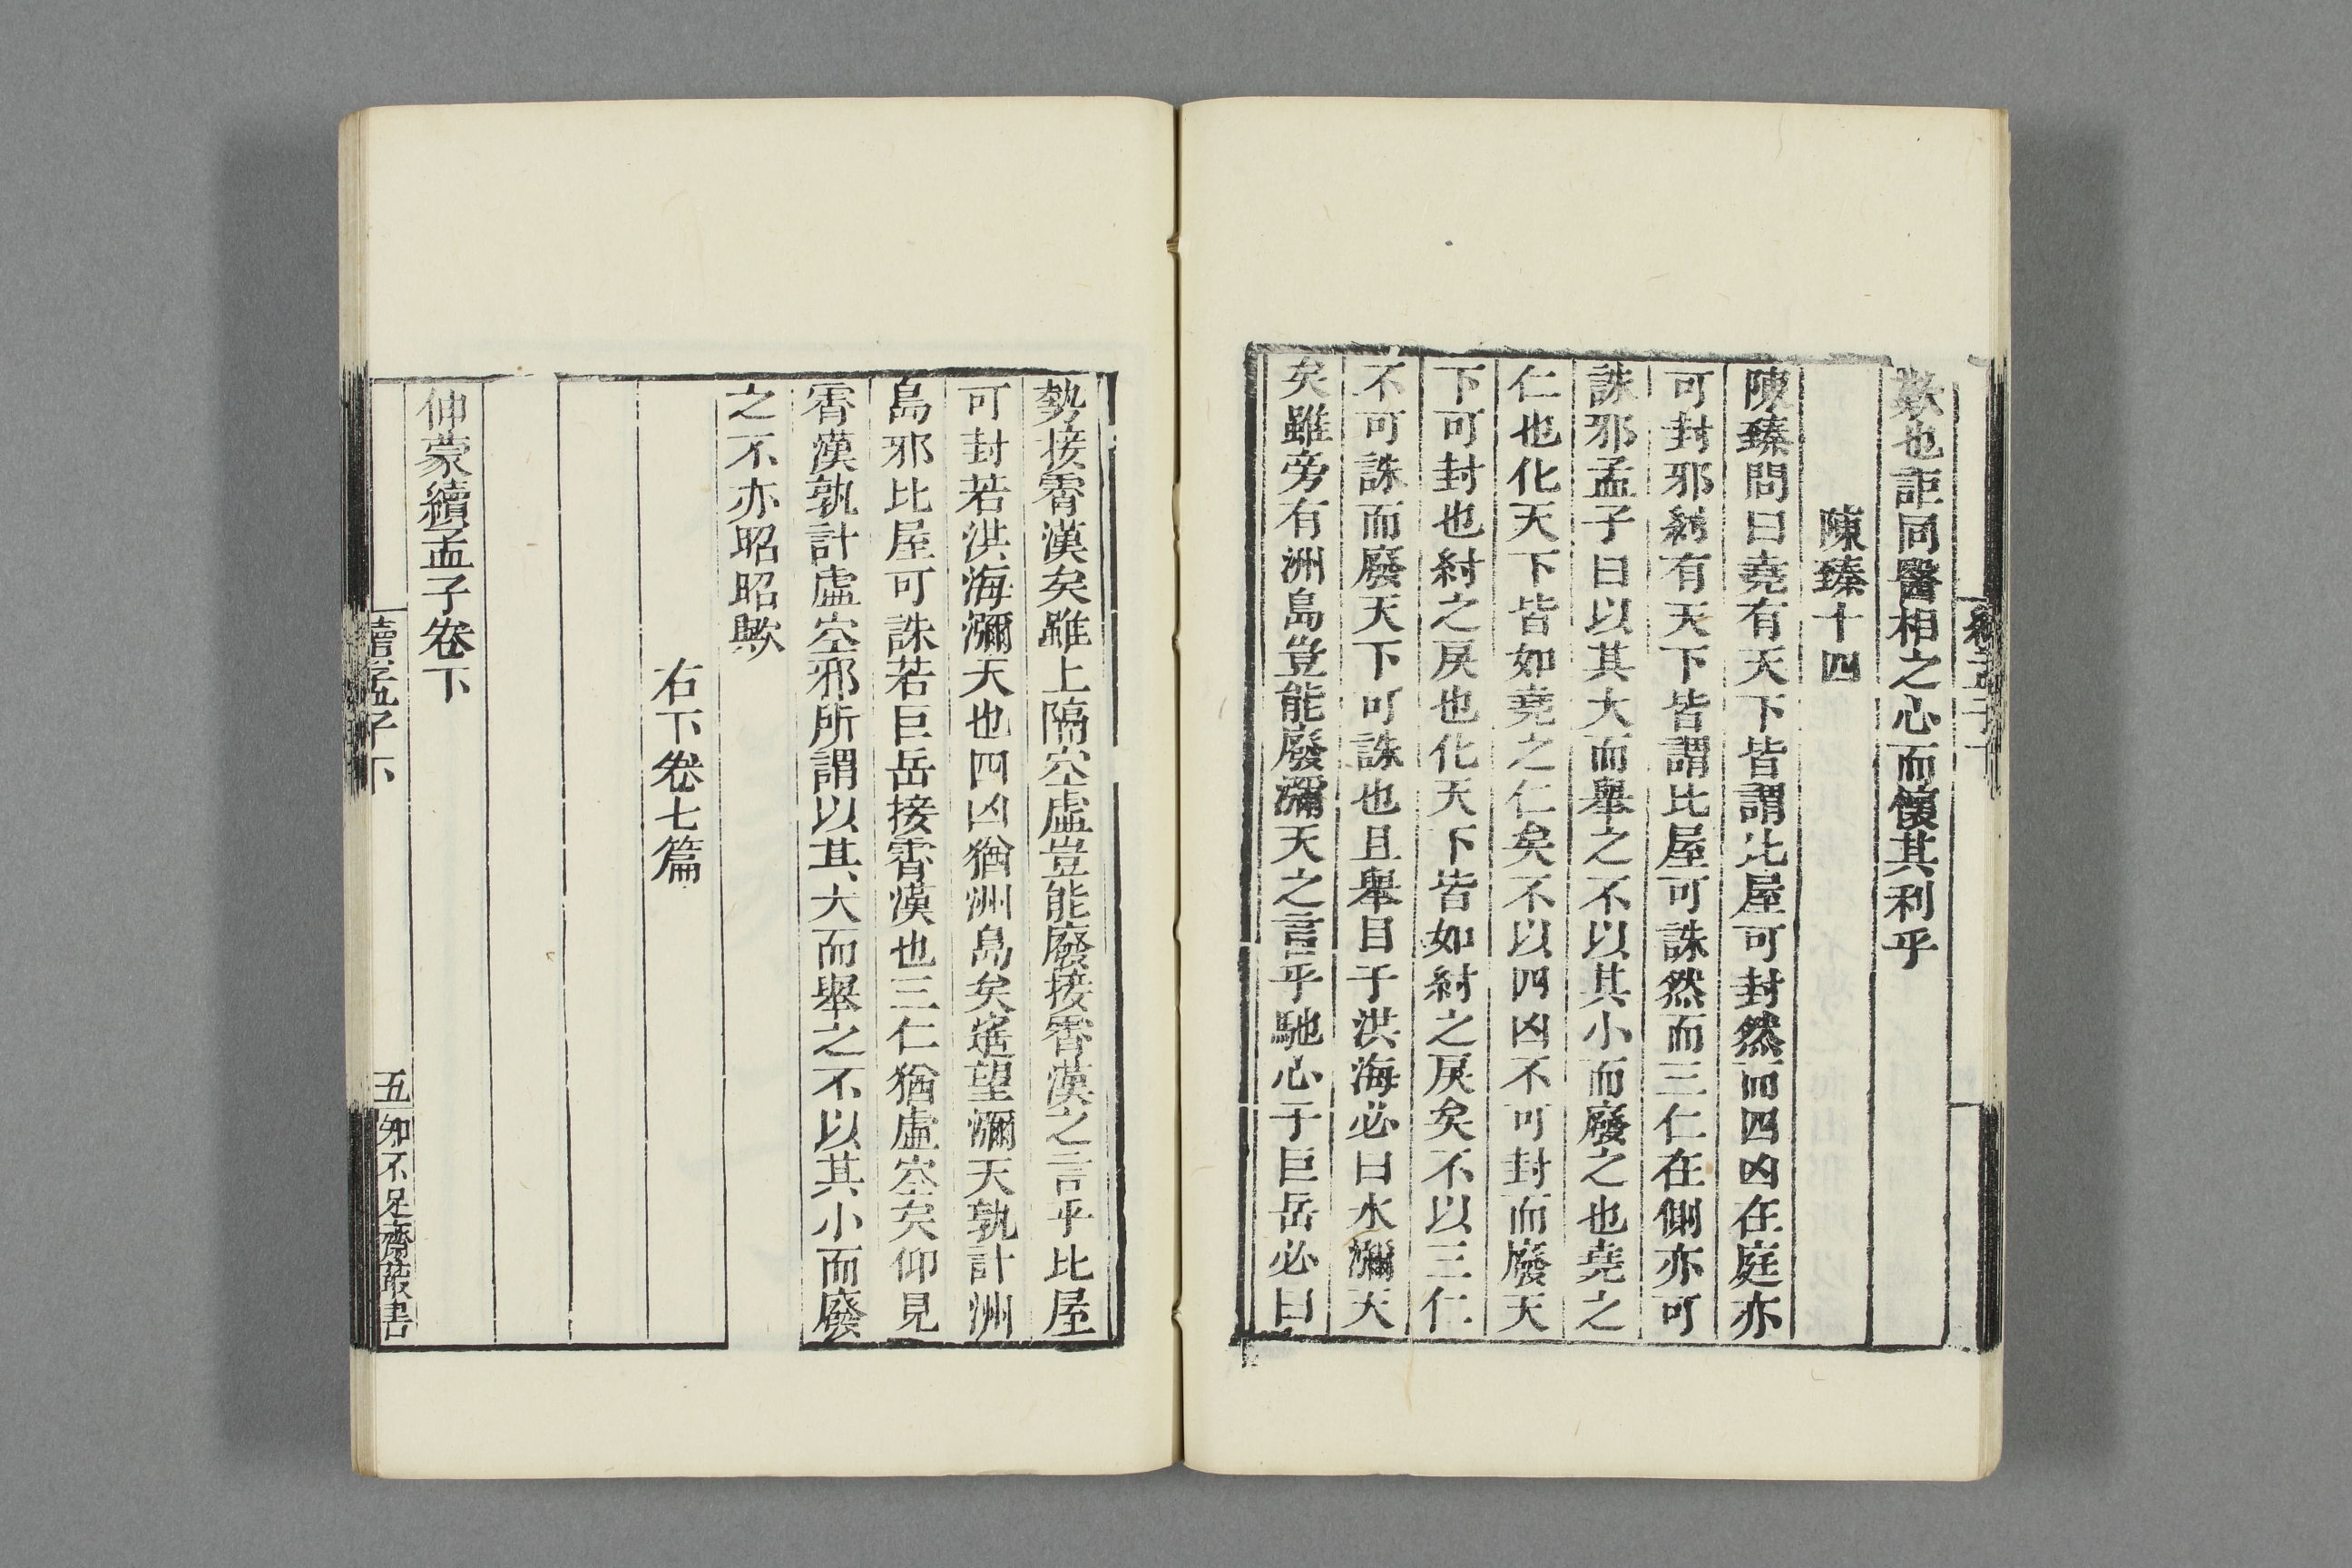 歎也詎同醫相之心而懷其利乎
陳臻十四
陳臻問曰堯有天下皆謂比屋可封然而四凶在庭亦
可封邪紂有天下皆謂比屋可誅然而三仁在側亦可
誅邪孟子曰以其大而舉之不以其小而廢之也堯之
仁也化天下皆如堯之仁矣不以四凶不可封而廢天
下可封也紂之戾也化天下皆如紂之戾矣不以三仁
不可誅而廢天下可誅也且舉目于洪海必曰水瀰天
矣雖旁有洲島豈能廢瀰天之言乎馳心于巨岳必曰
勢接霄漢矣雖上隔空虛豈能廢接霄漢之言乎比屋
可封若洪海瀰天也四凶猶洲島矣遙望瀰天孰計洲
島邪比屋可誅若巨岳接霄漢也三仁猶虛空矣仰見
霄漢孰計虛空邪所謂以其大而舉之不以其小而廢
之不亦昭昭歟
右下卷七篇
伸蒙續孟子卷下
續孟子下
五
知不足齋叢書